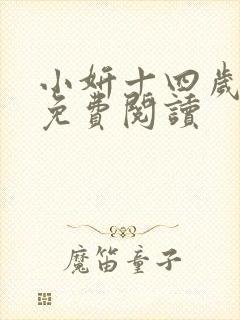 小妍十四歲
免費閱讀
魔笛童子